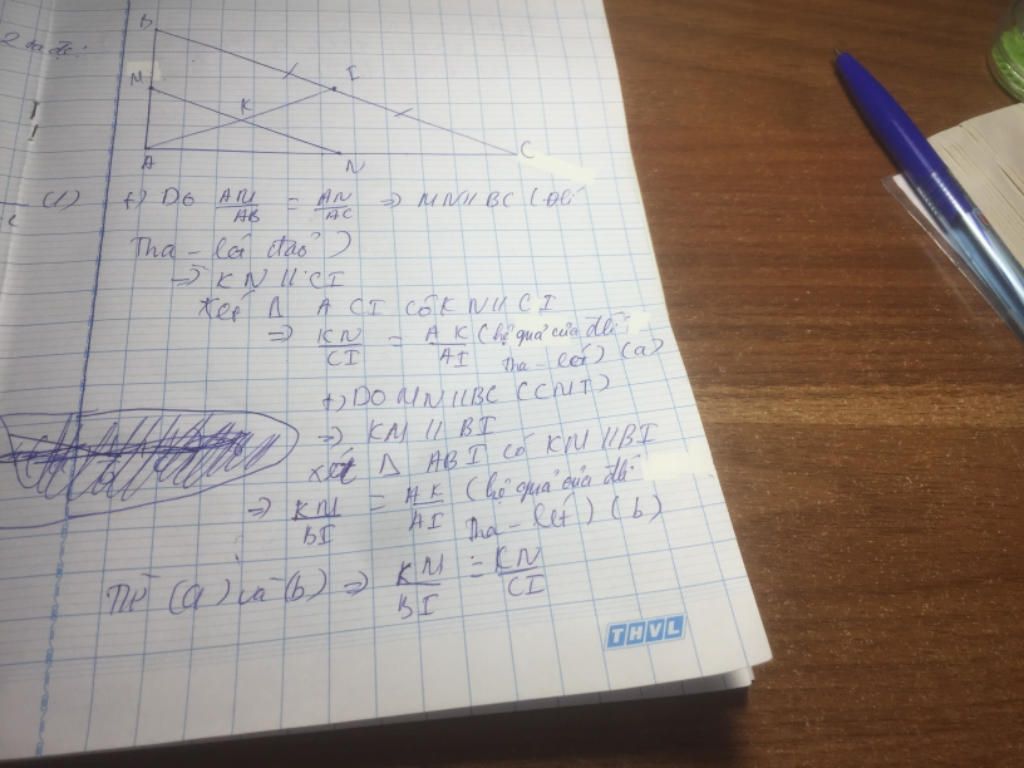 B
I
M
K
A
N
C
(1) +) Do AM/AB = AN/AC => MN//BC (Đli
Tha-lét đảo)
=> KN // CI
Xét Δ ACI có KN // CI
=> KN/CI = AK/AI (hệ quả của đli
Tha-lét) (a)
+) DO MN // BC (CMT)
=> KM // BI
Xét Δ ABI có KM // BI
=> KM/BI = AK/AI (hệ quả của đli
Tha-lét) (b)
Từ (a) và (b) => KM/BI = KN/CI
THVL